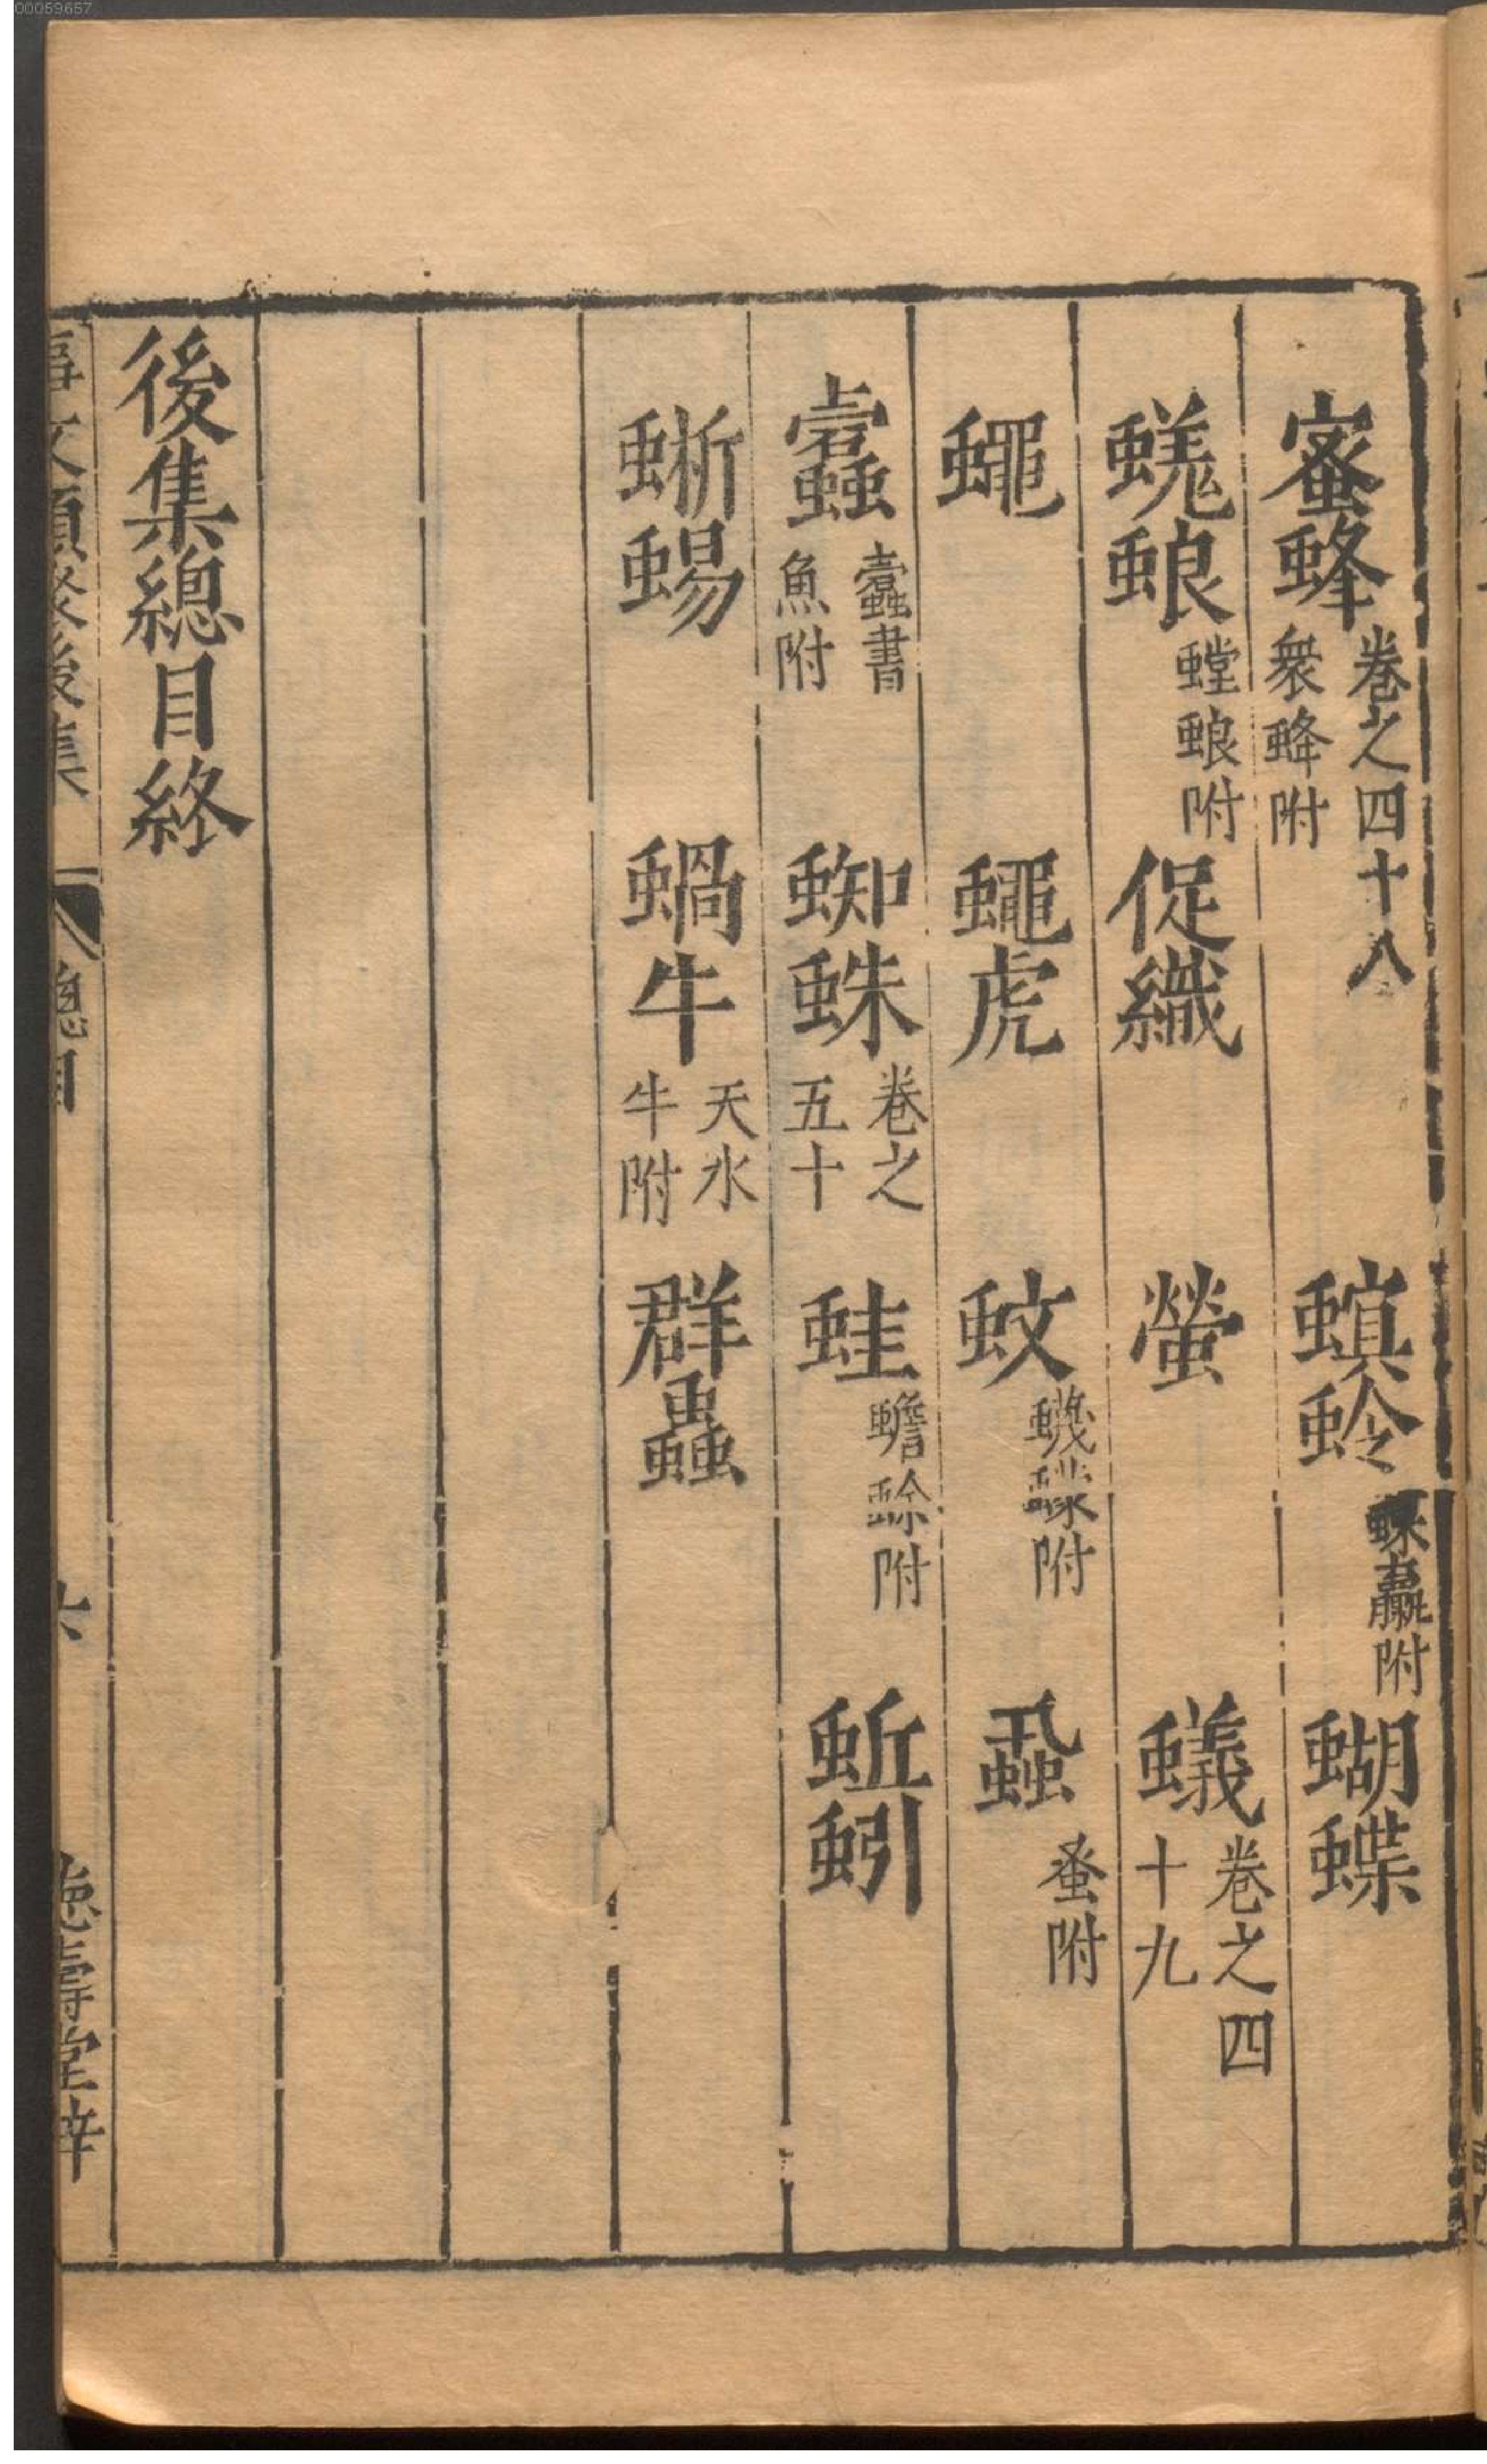 00059657
蜜蜂 卷之四十八 衆蜂附 螟蛉 蜾蠃附 蝴蝶
蜣蜋 螳蜋附 促織 螢 蟻 卷之四十九
蠅 蠅虎 蚊 蟣蠓附 蝨 蚤附
蠹 蠹書魚附 蜘蛛 卷之五十 蛙 蟾蜍附 蚯蚓
蜥蜴 蝸牛 天水牛附 群蟲
後集總目終
事文類聚後集 總目 六 德壽堂梓